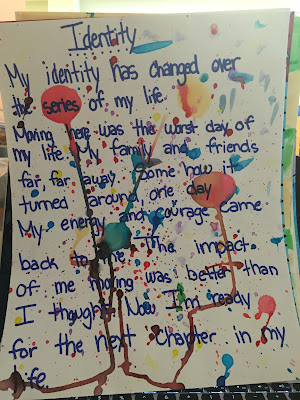 Identity
My identity has changed over
the series of my life.
Moving here was the worst day of
my life. My family and friends
far, far away. Some how it
turned around one day
My energy and courage came
back to me. The impact
of me moving was better than
I thought. Now I'm ready
for the next chapter in my
life.